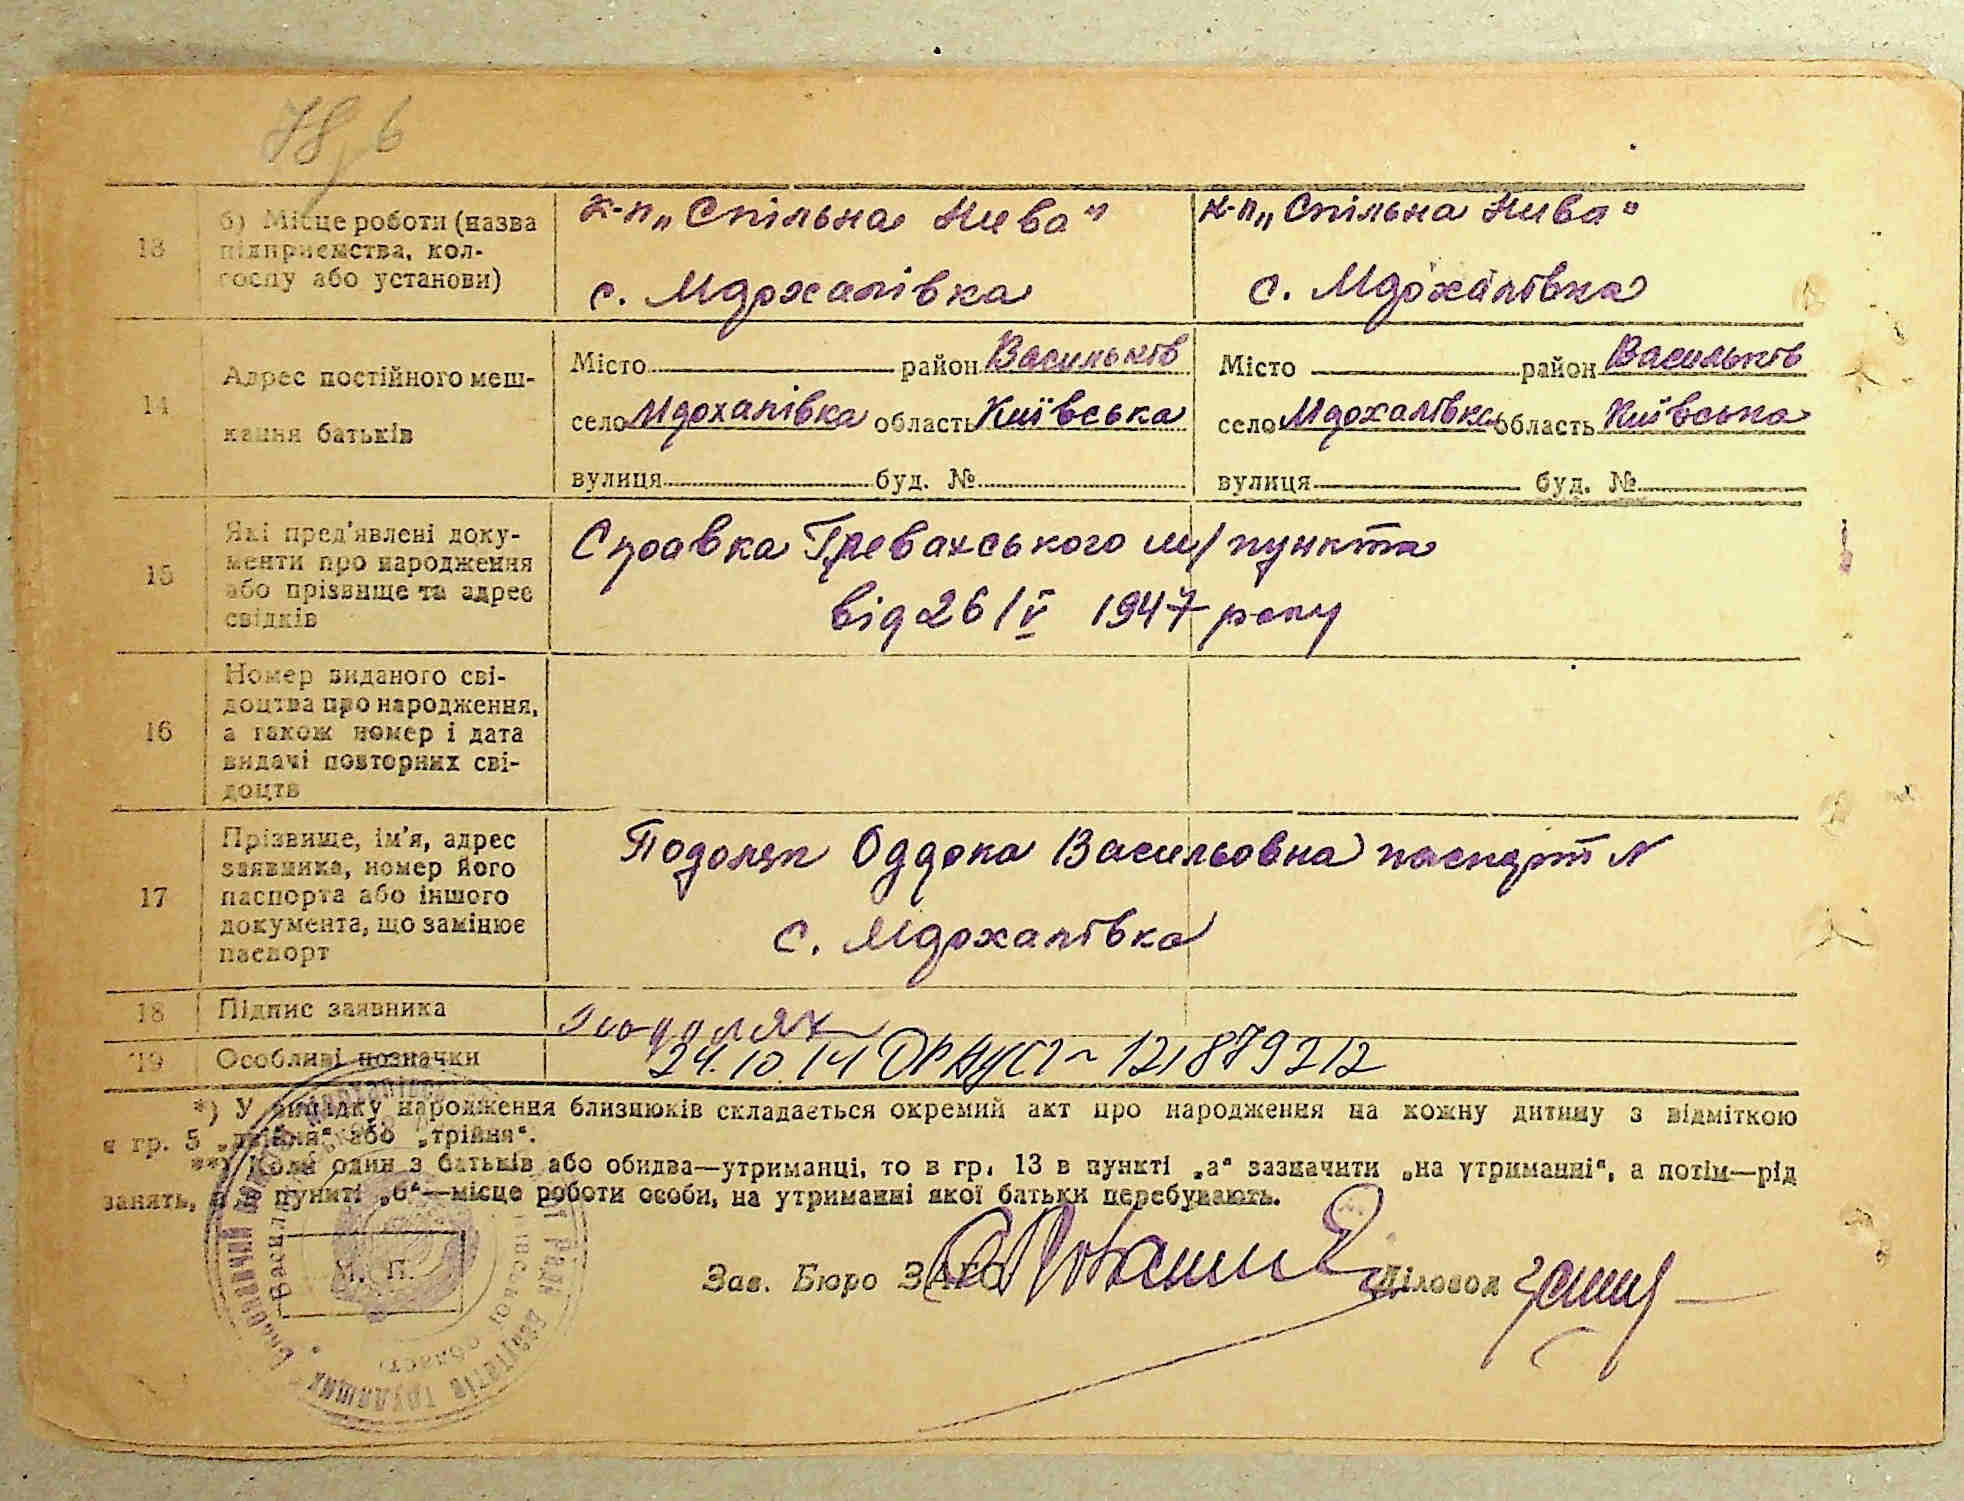 13
б) Місце роботи (назва
підприємства, кол-
госпу або установи)
к-п „Спільна Нива"
с. Мархалівка
к-п „Спільна Нива"
с. Мархалівка
14
Адрес постійного меш-
кання батьків
Місто район Васильків
село Мархалівка область Київська
вулиця буд. №
Місто район Васильків
село Мархалівка область Київська
вулиця буд. №
15
Які пред'явлені доку-
менти про народження
або прізвище та адрес
свідків
Справка
від 26/V 1947 року
16
Номер виданого сві-
доцтва про народження,
а також номер і дата
видачі повторних сві-
доцтв
17
Прізвище, ім'я, адрес
заявника, номер його
паспорта або іншого
документа, що замінює
паспорт
Подоляк Оддока Васильовна паспорт №
с. Мархалівка
18
Підпис заявника
Подоляк
19
Особливі позначки
24.10.14
*) У випадку народження близнюків складається окремий акт про народження на кожну дитину з відміткою
в гр. 5 „двійня" або „трійня".
**) Коли один з батьків або обидва—утриманці, то в гр. 13 в пункті „а" зазначити „на утриманні", а потім—рід
занять, а в пункті „б"—місце роботи особи, на утриманні якої батьки перебувають.
М. П.
Зав. Бюро ЗАГС
Діловод